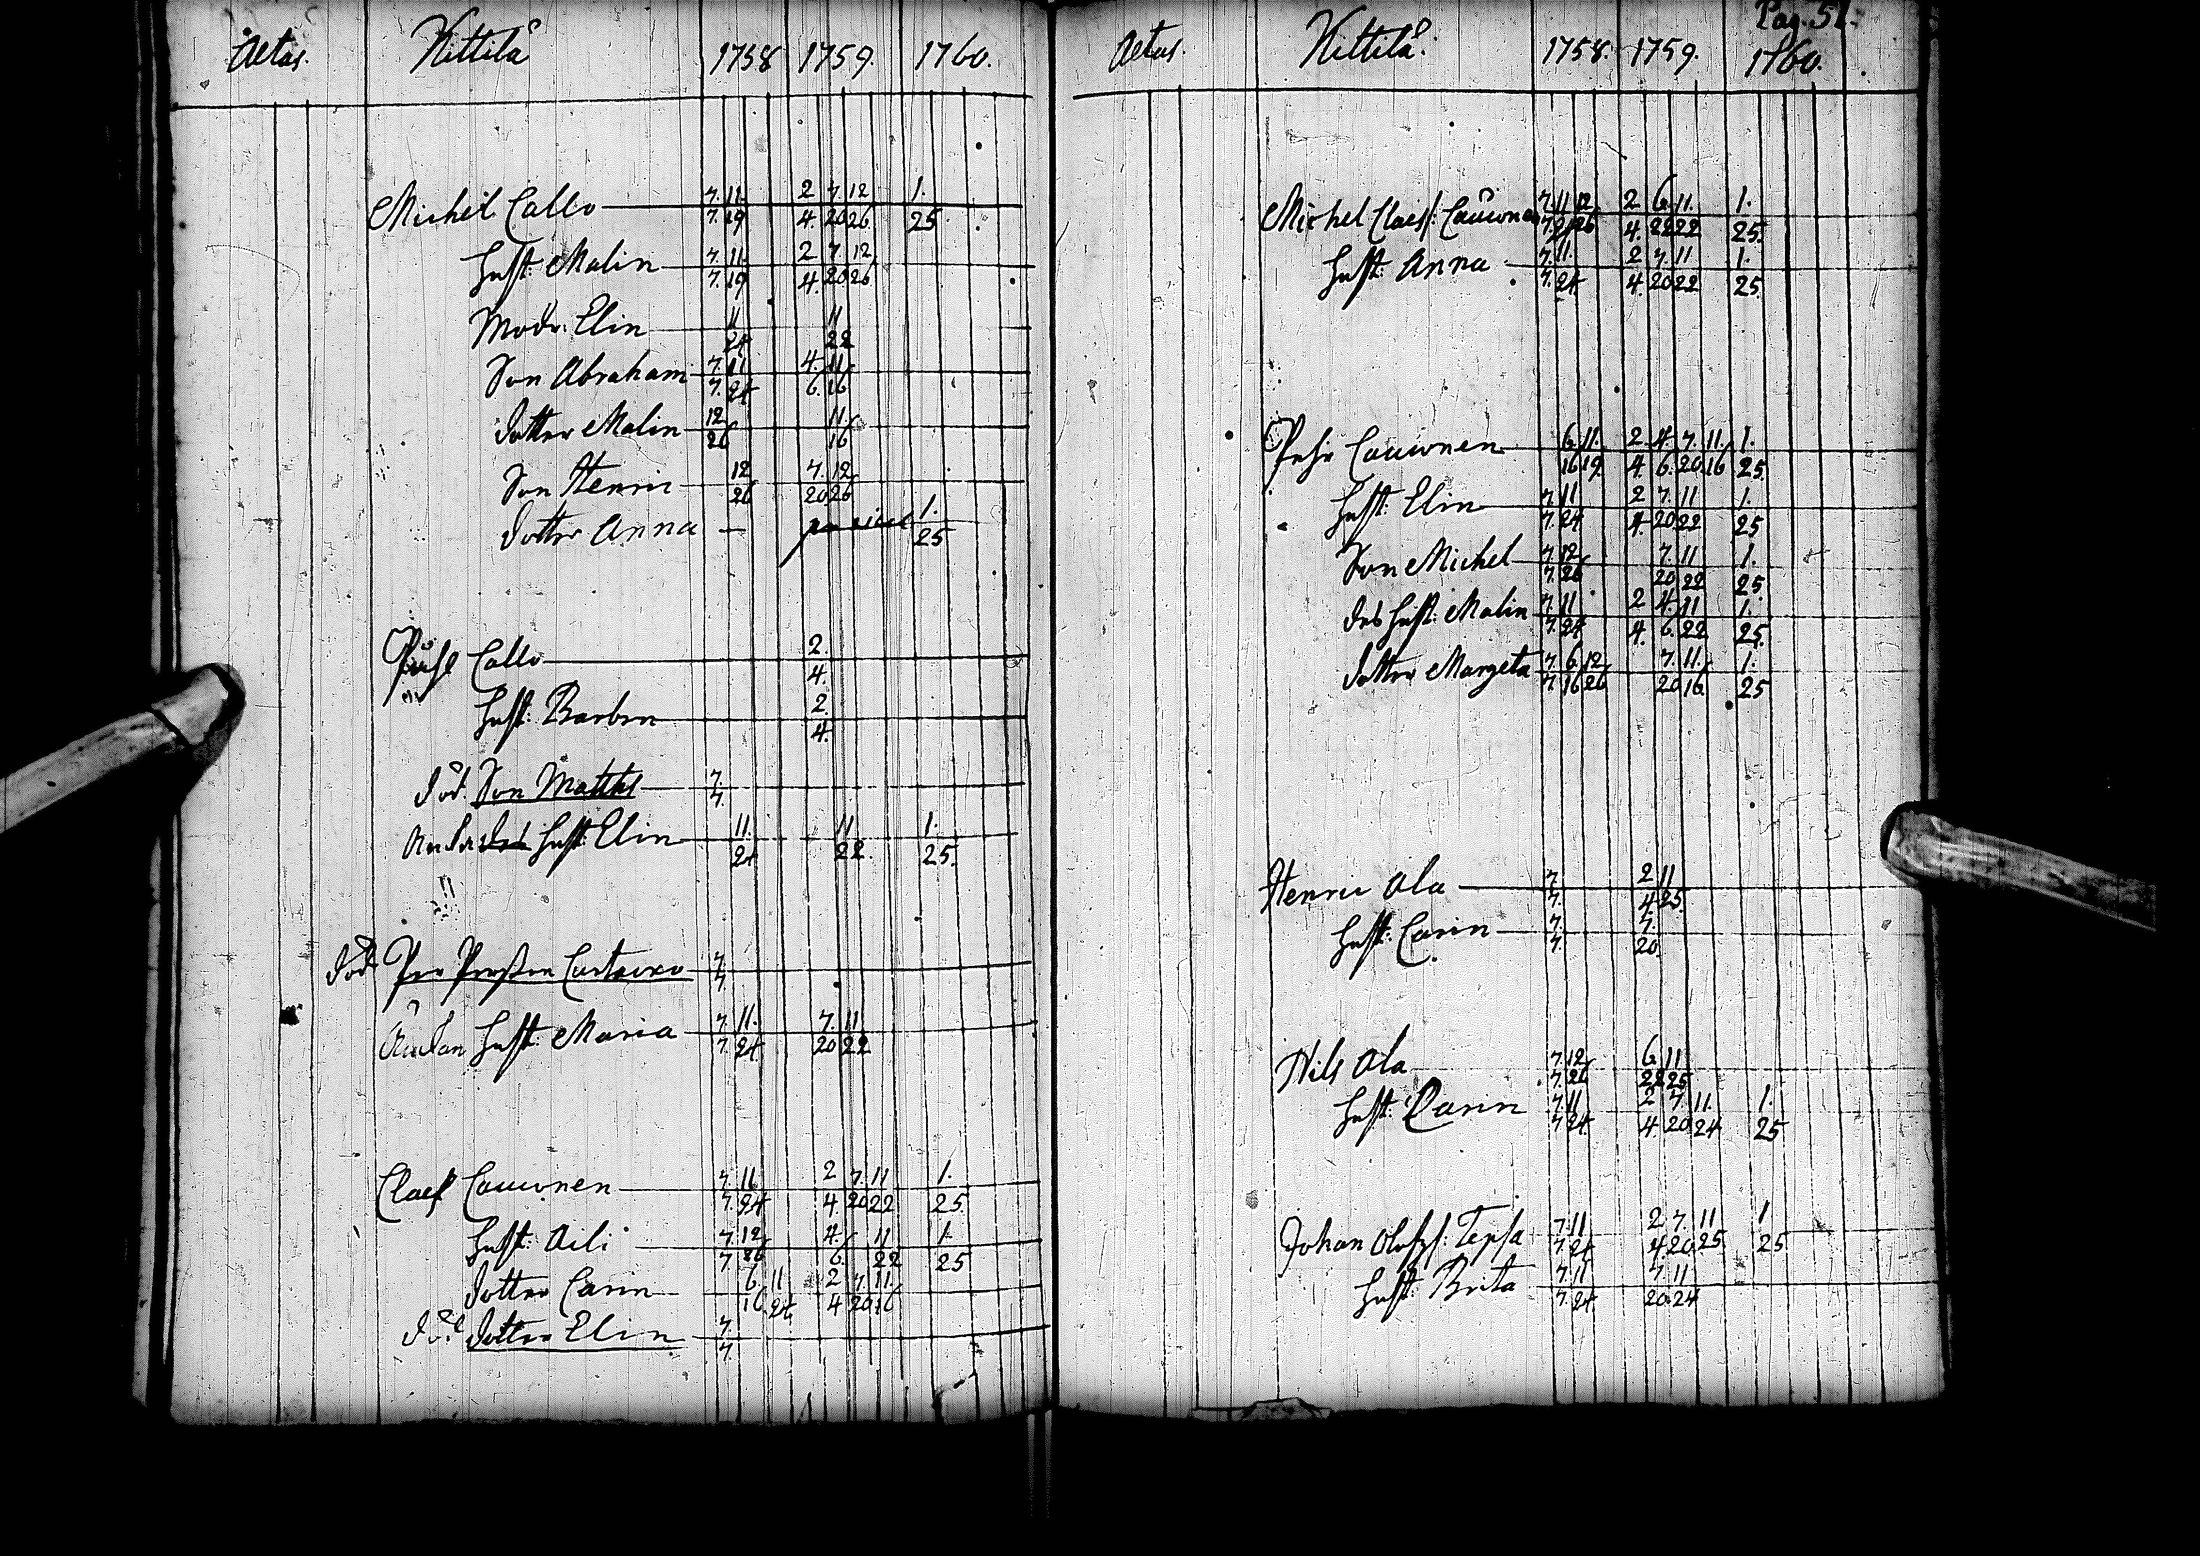 Aetas. Kittilä 1758 1759. 1760.
Michel Callo 7. 11. 2 7 12 1.
7. 19 4. 20 26. 25
hust: Malin 7. 11. 2 7 12
7. 19 4. 20 26
Modr: Elin 11 11
24 22
Son Abraham 7. 11 4. 11
7. 24 6. 16
dotter Malin 12 11
26 16
Son Henric 12 7. 12
26 20 26
dotter Anna — 1.
25
Påhl Callo 2.
4.
hust: Barbro 2.
4.
död. Son Matths 7.
7.
hust: Elin 11. 11 1.
24 22. 25.
död Per Persson 7.
7.
Änkan hust: Maria 7. 11. 7. 11
7. 24 20 22
Claes Cauwnen 7. 11 2 7. 11 1.
7. 24 4. 20 22 25
hust: Aili 7. 12 4. 11 1.
7 26 6. 22 25
dotter Carin 6. 11 2 7. 11.
16. 24 4 20 16
död dotter Elin 7.
7.
Pag. 51.
Aetas. Kittilä. 1758. 1759. 1760.
Michel Claess: Cauwnen 7. 11 12 2 6. 11. 1.
7. 24 26 4. 22 22 25.
hust: Anna 7. 11. 2 7. 11 1.
7. 24 4. 20 22 25.
Pehr Cauwnen 6. 11. 2 4. 7. 11. 1.
16 19. 4 6. 20 16 25.
hust: Elin 7. 11 2 7. 11 1.
7. 24 4 20 22 25
Son Michel 7. 12 7. 11 1.
7. 26 20 22 25.
des hust: Malin 7. 11 2 4. 11 1.
7. 24 4. 6. 22 25.
dotter Margeta 7. 6. 12 7. 11. 1.
7 16 26 20 16 25
Henric Ala 7. 2 11
7. 4 25.
hust: Carin 7. 7.
7. 20.
Nils Ala 7. 12 6. 11
7. 26 22 25
hust: Carin 7. 11 2 7. 11. 1.
7 24 4. 20 24 25
Johan Olofss: Tepsa 7. 11 2 7. 11 1
7 24 4. 20 25 25
hust: Brita 7. 11 7. 11
7. 24 20. 24